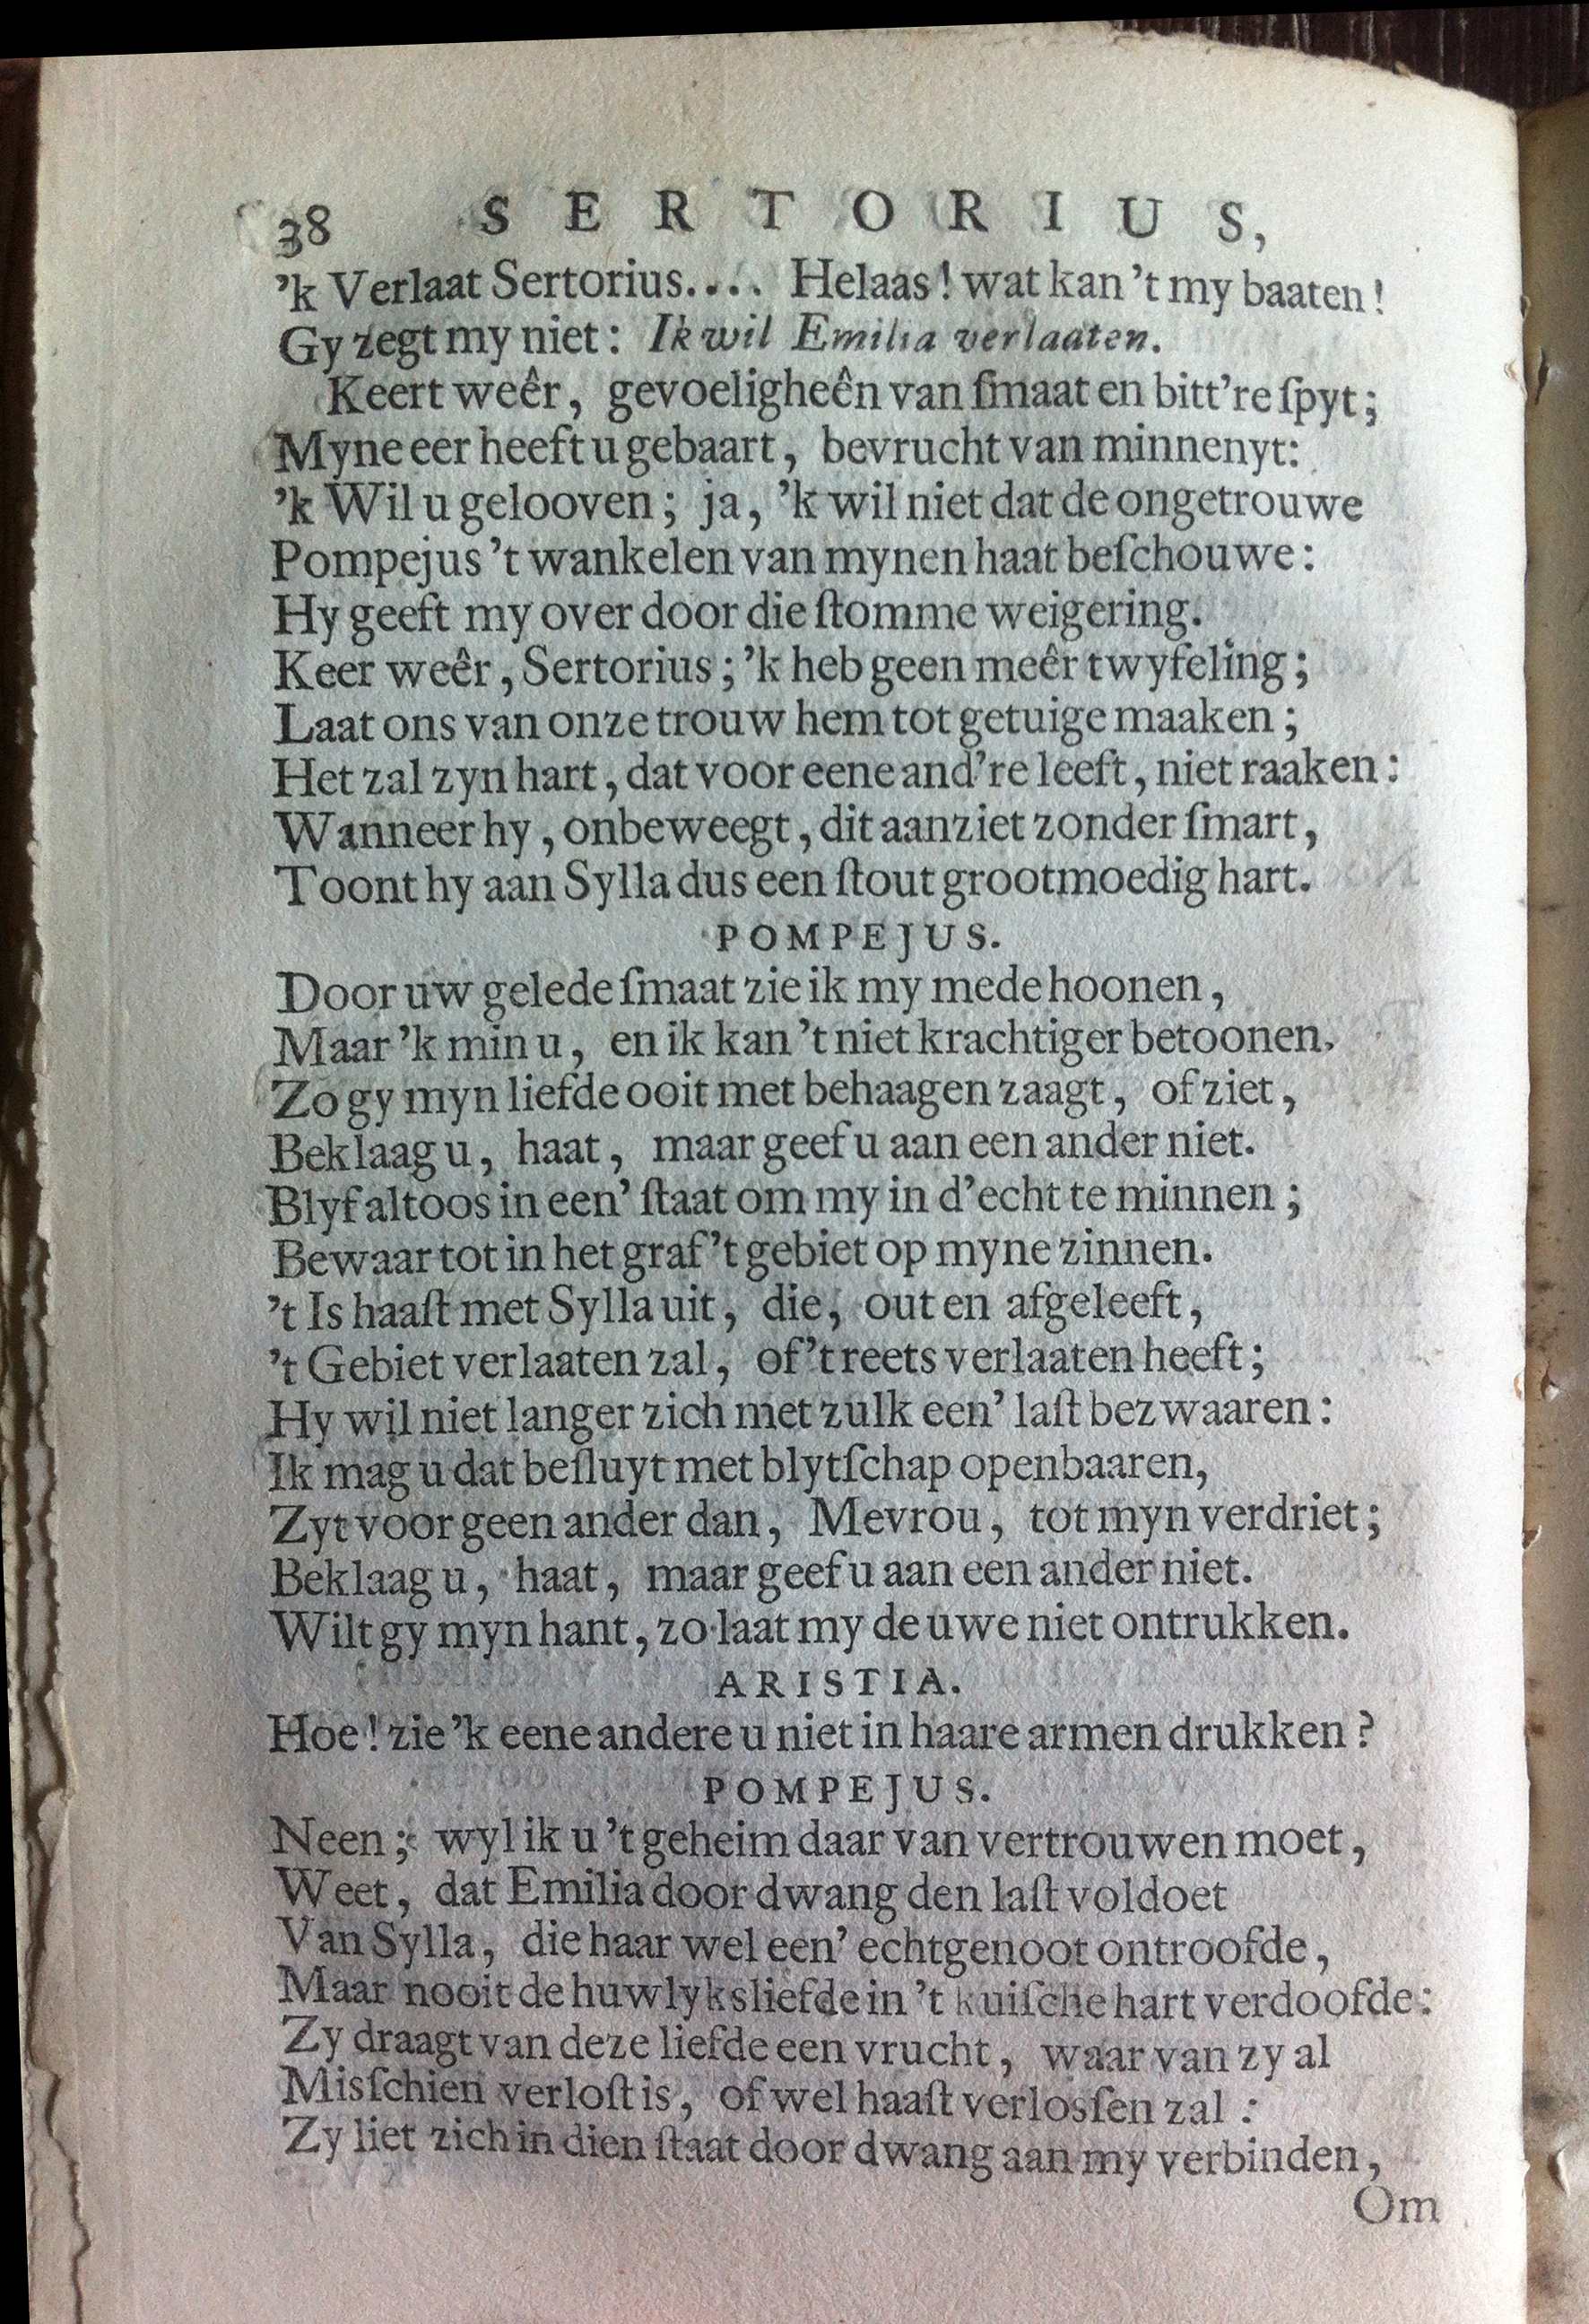 38 SERTORIUS,
'k Verlaat Sertorius.... Helaas! wat kan 't my baaten!
Gy zegt my niet: Ik wil Emilia verlaaten.
Keert weêr, gevoeligheên van ſmaat en bitt're ſpyt;
Myne eer heeft u gebaart, bevrucht van minnenyt:
'k Wil u gelooven; ja, 'k wil niet dat de ongetrouwe
Pompejus 't wankelen van mynen haat beſchouwe:
Hy geeft my over door die ſtomme weigering.
Keer weêr, Sertorius; 'k heb geen meêr twyfeling;
Laat ons van onze trouw hem tot getuige maaken;
Het zal zyn hart, dat voor eene and're leeft, niet raaken:
Wanneer hy, onbeweegt, dit aanziet zonder ſmart,
Toont hy aan Sylla dus een ſtout grootmoedig hart.
POMPEJUS.
Door uw gelede ſmaat zie ik my mede hoonen,
Maar 'k min u, en ik kan 't niet krachtiger betoonen.
Zo gy myn liefde ooit met behaagen zaagt, of ziet,
Beklaag u, haat, maar geef u aan een ander niet.
Blyf altoos in een' ſtaat om my in d'echt te minnen;
Bewaar tot in het graf 't gebiet op myne zinnen.
't Is haaſt met Sylla uit, die, out en afgeleeft,
't Gebiet verlaaten zal, of 't reets verlaaten heeft;
Hy wil niet langer zich met zulk een' laſt bezwaaren:
Ik mag u dat beſluyt met blytſchap openbaaren,
Zyt voor geen ander dan, Mevrou, tot myn verdriet;
Beklaag u, haat, maar geef u aan een ander niet.
Wilt gy myn hant, zo laat my de uwe niet ontrukken.
ARISTIA.
Hoe! zie 'k eene andere u niet in haare armen drukken?
POMPEJUS.
Neen; wyl ik u 't geheim daar van vertrouwen moet,
Weet, dat Emilia door dwang den laſt voldoet
Van Sylla, die haar wel een' echtgenoot ontroofde,
Maar nooit de huwlyksliefde in 't kuiſche hart verdoofde:
Zy draagt van deze liefde een vrucht, waar van zy al
Misſchien verloſt is, of wel haaſt verlosſen zal:
Zy liet zich in dien ſtaat door dwang aan my verbinden,
Om